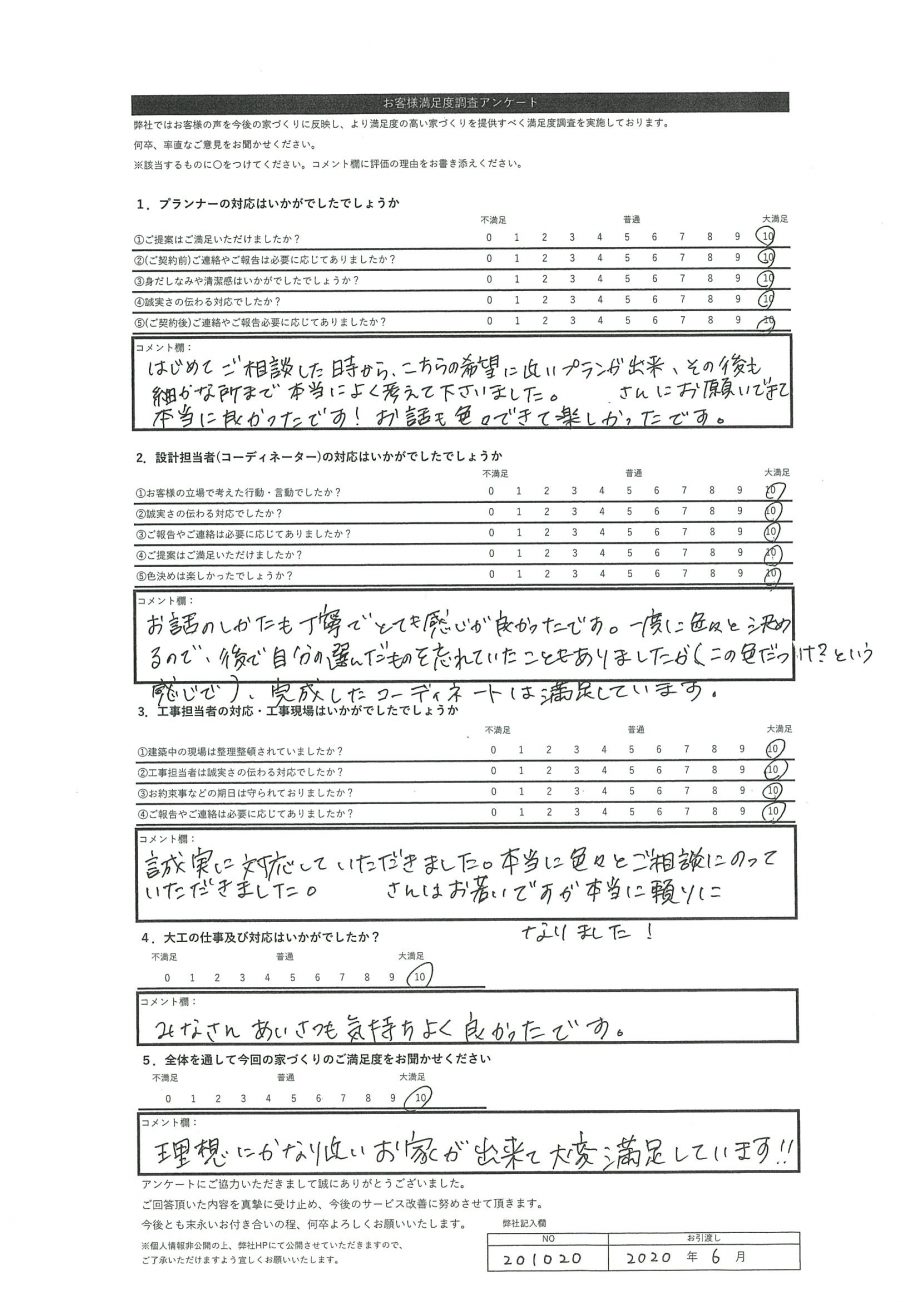 お客様満足度調査アンケート
弊社ではお客様の声を今後の家づくりに反映し、より満足度の高い家づくりを提供すべく満足度調査を実施しております。
何卒、率直なご意見をお聞かせください。
※該当するものに〇をつけてください。コメント欄に評価の理由をお書き添えください。
1．プランナーの対応はいかがでしたでしょうか
不満足 普通 大満足
①ご提案はご満足いただけましたか？ 0 1 2 3 4 5 6 7 8 9 10
②(ご契約前)ご連絡やご報告は必要に応じてありましたか？ 0 1 2 3 4 5 6 7 8 9 10
③身だしなみや清潔感はいかがでしたでしょうか？ 0 1 2 3 4 5 6 7 8 9 10
④誠実さの伝わる対応でしたか？ 0 1 2 3 4 5 6 7 8 9 10
⑤(ご契約後)ご連絡やご報告必要に応じてありましたか？ 0 1 2 3 4 5 6 7 8 9 10
コメント欄：
はじめてご相談した日時から、こちらの希望に近いプランが出来、その後も
細かな所まで本当によく考えて下さいました。 さんにお願いできて
本当に良かったです！お話も色々できて楽しかったです。
2．設計担当者(コーディネーター)の対応はいかがでしたでしょうか
不満足 普通 大満足
①お客様の立場で考えた行動・言動でしたか？ 0 1 2 3 4 5 6 7 8 9 10
②誠実さの伝わる対応でしたか？ 0 1 2 3 4 5 6 7 8 9 10
③ご報告やご連絡は必要に応じてありましたか？ 0 1 2 3 4 5 6 7 8 9 10
④ご提案はご満足いただけましたか？ 0 1 2 3 4 5 6 7 8 9 10
⑤色決めは楽しかったでしょうか？ 0 1 2 3 4 5 6 7 8 9 10
コメント欄：
お話のしかたも丁寧でとても感じが良かったです。一度に色々と決め
るので、後で自分の選んだものを忘れていたこともありましたが(この色だっけ？という
感じで)、完成したコーディネートは満足しています。
3．工事担当者の対応・工事現場はいかがでしたでしょうか
不満足 普通 大満足
①建築中の現場は整理整頓されていましたか？ 0 1 2 3 4 5 6 7 8 9 10
②工事担当者は誠実さの伝わる対応でしたか？ 0 1 2 3 4 5 6 7 8 9 10
③お約束事などの期日は守られておりましたか？ 0 1 2 3 4 5 6 7 8 9 10
④ご報告やご連絡は必要に応じてありましたか？ 0 1 2 3 4 5 6 7 8 9 10
コメント欄：
誠実に対応していただきました。本当に色々とご相談にのって
いただきました。 さんはお若いですが本当に頼りに
なりました！
4．大工の仕事及び対応はいかがでしたか？
不満足 普通 大満足
0 1 2 3 4 5 6 7 8 9 10
コメント欄：
みなさんあいさつも気持ちよく良かったです。
5．全体を通して今回の家づくりのご満足度をお聞かせください
不満足 普通 大満足
0 1 2 3 4 5 6 7 8 9 10
コメント欄：
理想にかなり近いお家が出来て大変満足しています!!
アンケートにご協力いただきまして誠にありがとうございました。
ご回答頂いた内容を真摯に受け止め、今後のサービス改善に努めさせて頂きます。
今後とも末永いお付き合いの程、何卒よろしくお願いいたします。
※個人情報非公開の上、弊社HPにて公開させていただきますので、
ご了承いただけますよう宜しくお願いいたします。
弊社記入欄
NO お引渡し
201020 2020 年 6 月